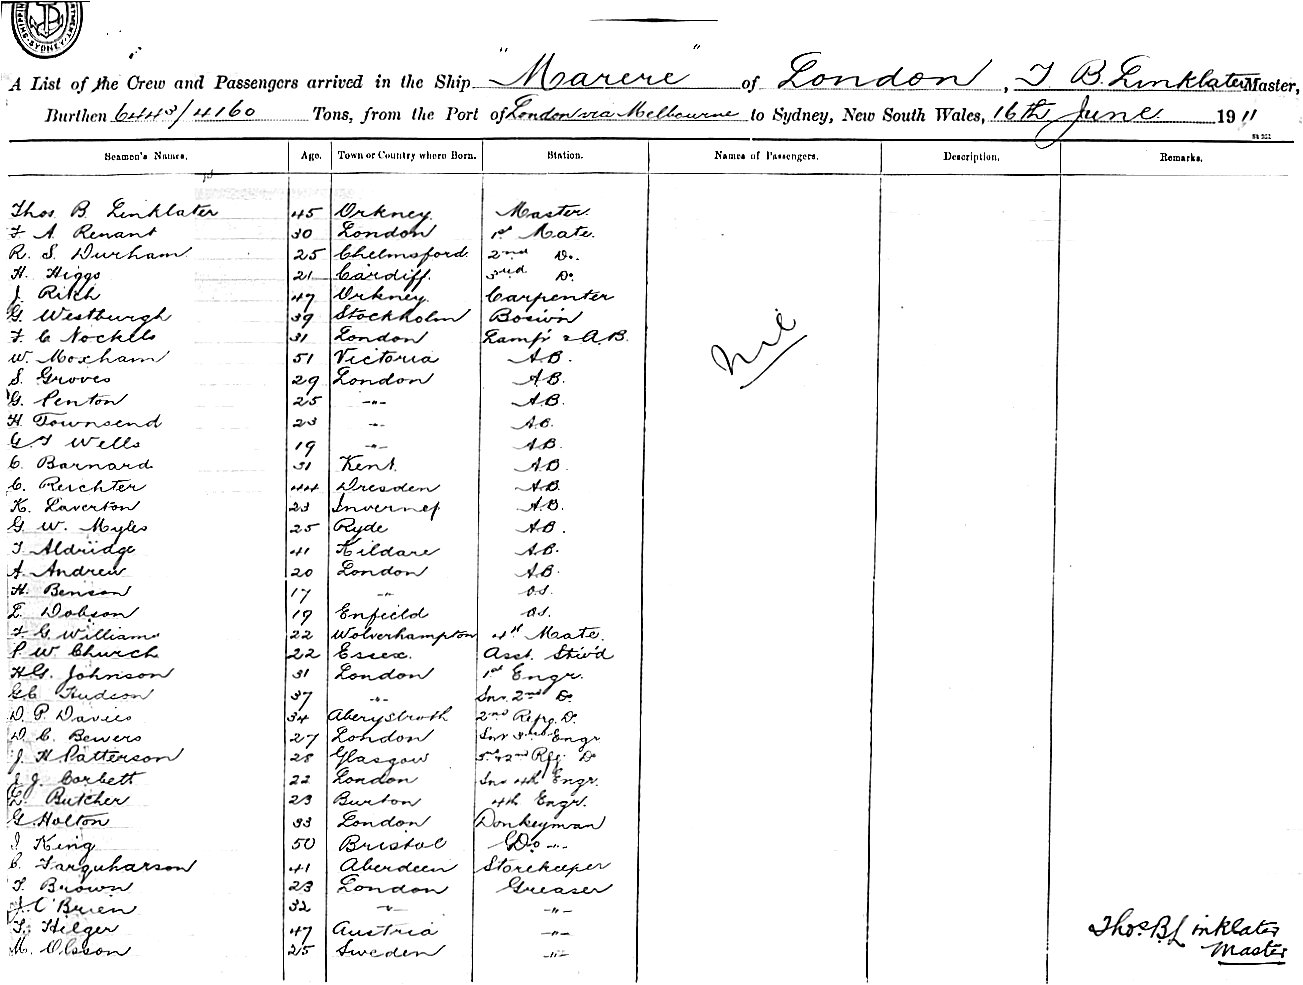 SHIPPING DEPARTMENT SYDNEY
A List of the Crew and Passengers arrived in the Ship "Marere" of London, T B. Linklater Master,
Burthen 6443/4160 Tons, from the Port of London via Melbourne to Sydney, New South Wales, 16th June 1911
Seamen's Names. Age. Town or Country where Born. Station. Names of Passengers. Description. Remarks.
Thos B. Linklater 45 Orkney. Master.
F A. Renant 30 London 1st Mate.
R. S. Durham 25 Chelmsford. 2nd Do.
H. Higgs 21 Cardiff. 3rd Do
J. Rikh 47 Orkney. Carpenter
G. Westburgh 39 Stockholm Bosw'n
F. C Nockels 31 London Lampr & A.B.
W. Moxham 51 Victoria A.B.
S. Groves 29 London A.B.
G. Penton 25 -"- A.B.
H. Townsend 23 -"- A.B.
G. F Wells 19 -"- A.B.
C. Barnard 31 Kent. A.B.
C. Reichter 44 Dresden A.B.
K. Laverton 23 Inverness A.B.
G. W. Myles 25 Ryde A.B.
T. Aldridge 41 Kildare A.B.
A. Andrew 20 London A.B.
H. Benson 17 -"- O.S.
E. Dobson 19 Enfield O.S.
F G. Williams 22 Wolverhampton 4th Mate.
P. W. Church 22 Essex. Asst. Stew'd
H.G. Johnson 31 London 1st Engr.
G C Hudson 37 -"- Snr. 2nd Do
D. P. Davies 34 Aberystwoth 2nd Refrg. Do.
D. C. Bewers 27 London Snr 3rd Engr
J. H Patterson 28 Glasgow 2nd Rfg. Do
J. J. Corbett 22 London Snr 4th Engr.
E. Butcher 23 Burton 4th Engr.
G. Holton 33 London Donkeyman
J. King 50 Bristol Do -"-
C. Farquharson 41 Aberdeen Storekeeper
T. Brown 23 London Greaser
J. O'Brien 32 -"- -"-
F. Hilger 47 Austria -"-
M. Olsson 25 Sweden -"-
nil
Thos. B. Linklater
Master